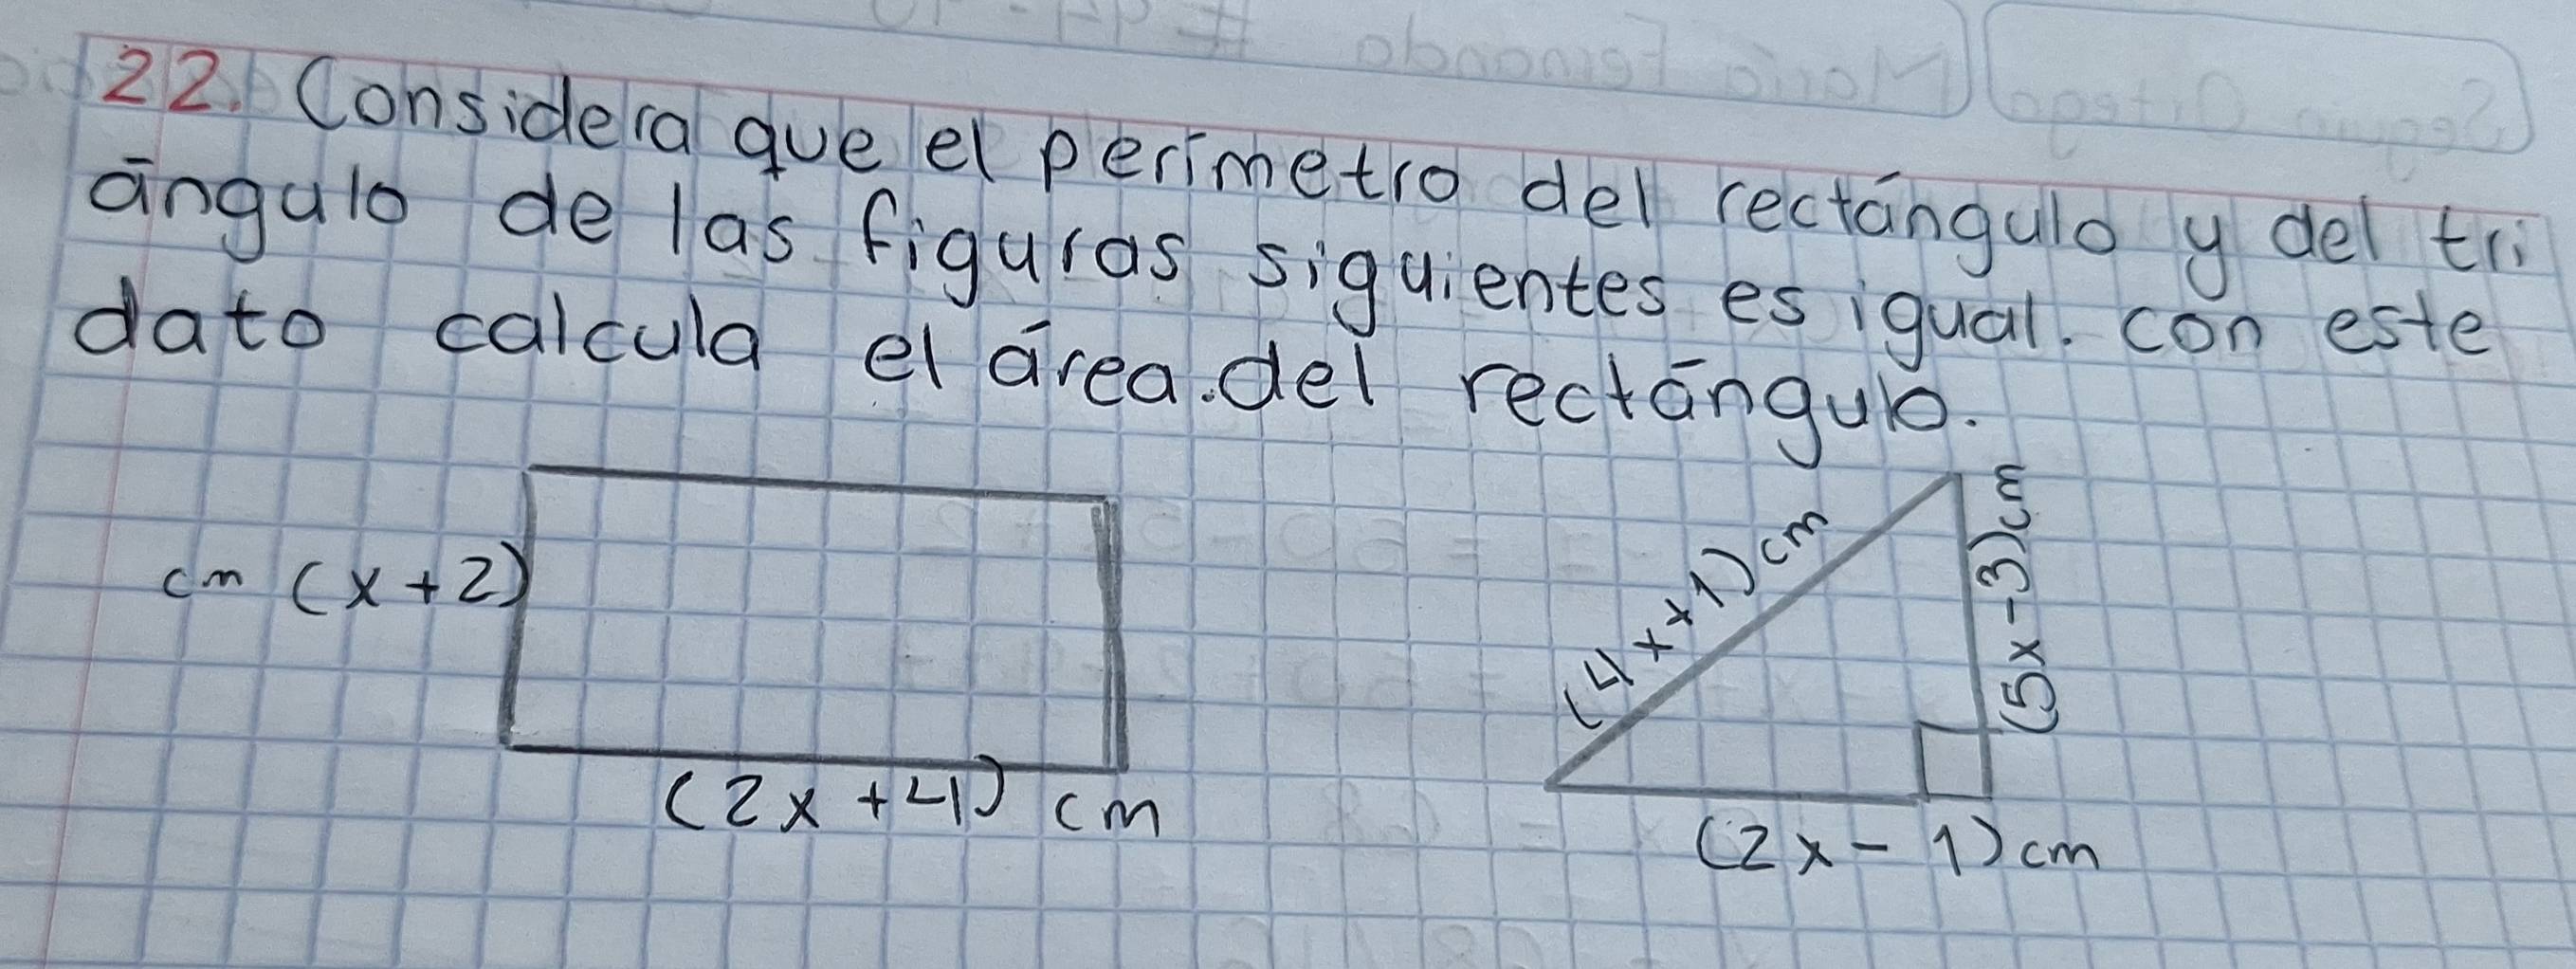 22. Considera que el perímetro del rectángulo y del tri
ángulo de las figuras siguientes es igual. con este
dato calcula el área.del rectángulo.
cm (x+2)
(2x+4) cm
(4x+1)cm
(5x-3)cm
(2x-1)cm